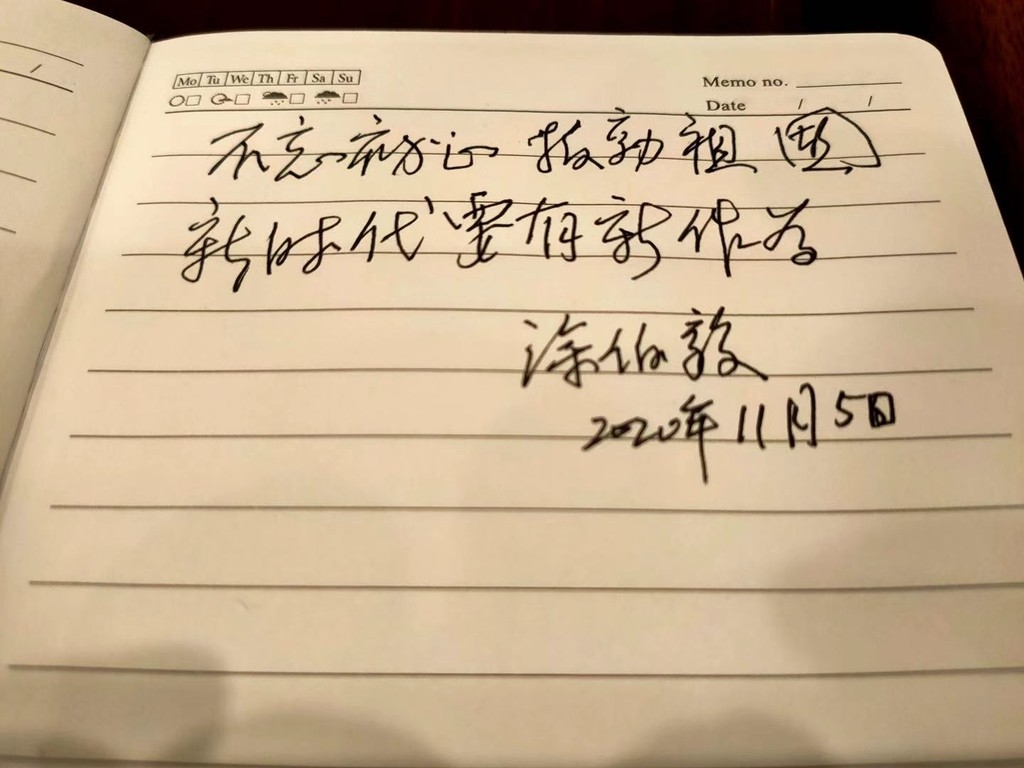 Mo Tu We Th Fr Sa Su
Memo no.
Date / /
不忘初心 报効祖国
新时代要有新作为
涂伯毅
2020年11月5日